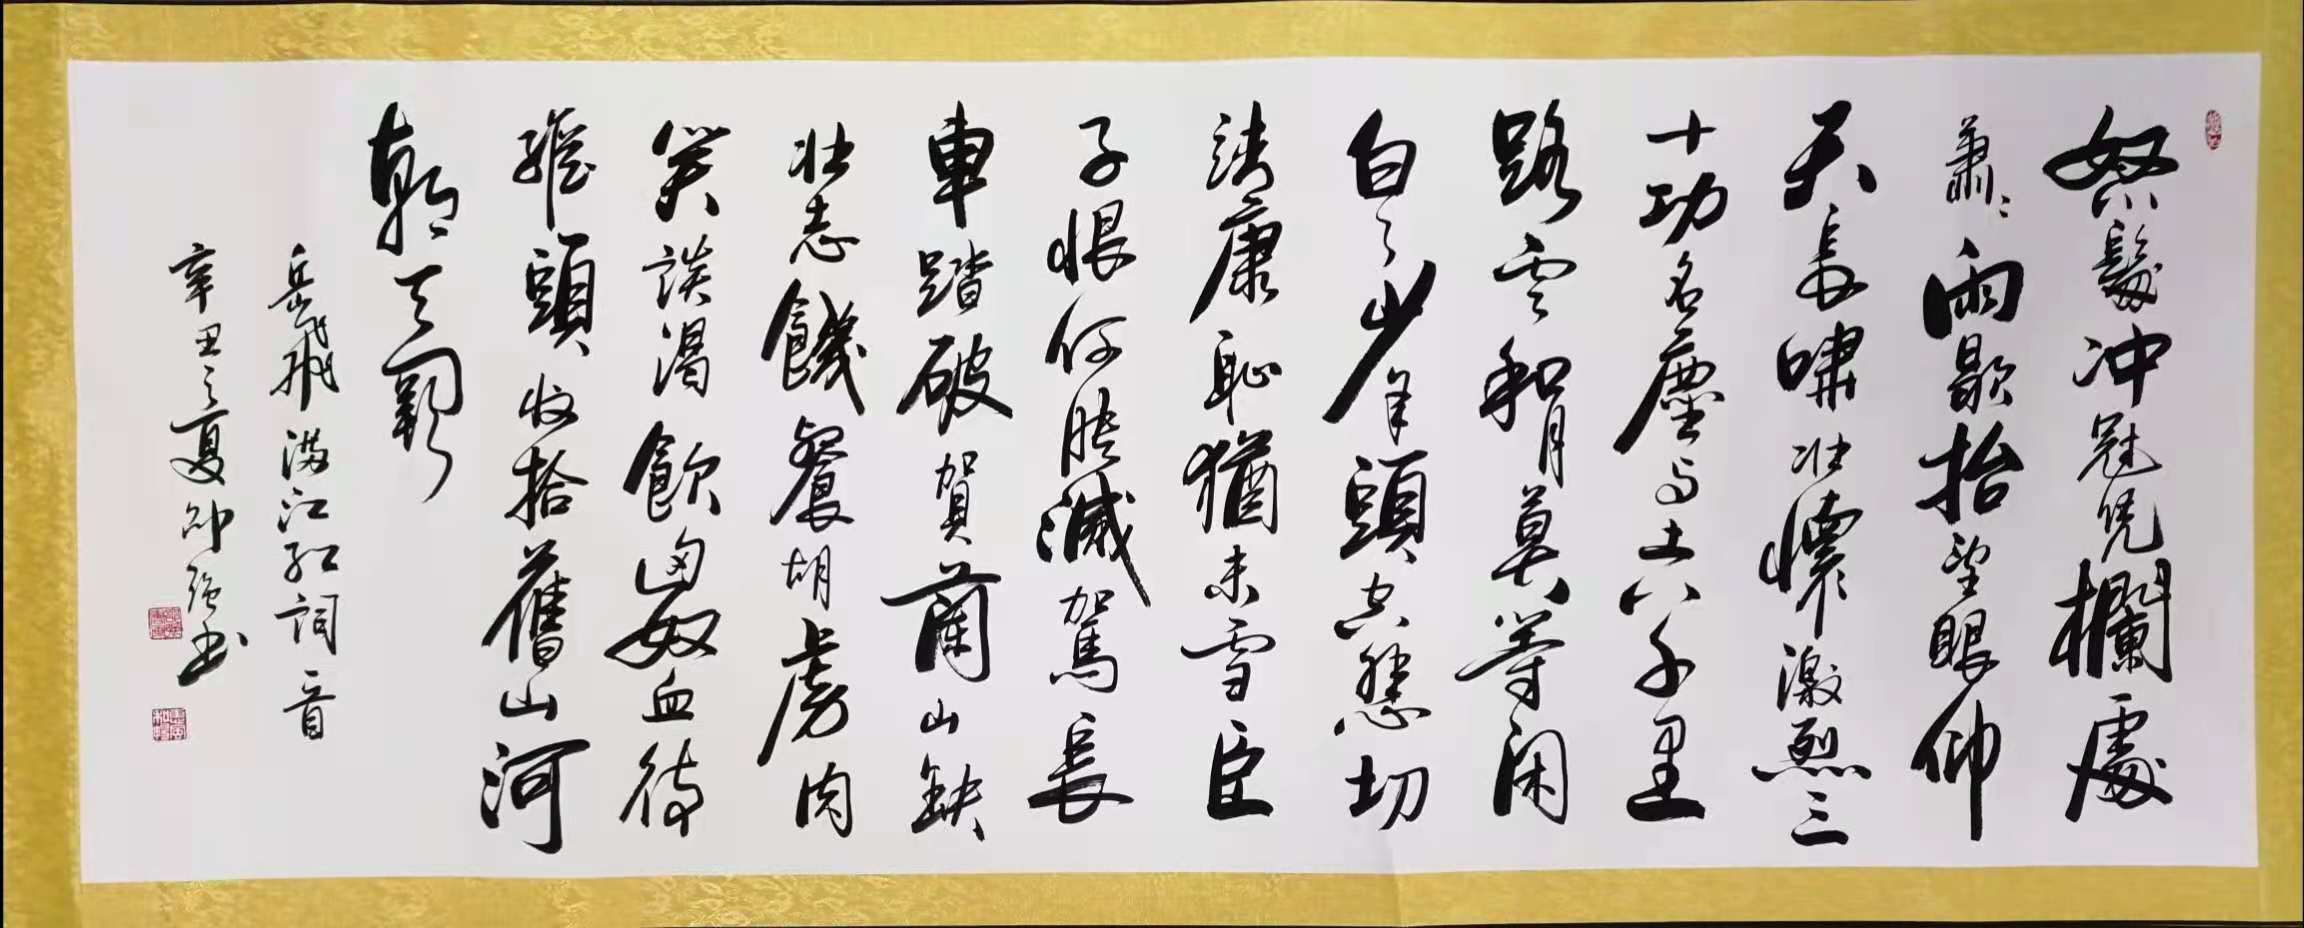 怒髮冲冠凭欄處
蕭〻雨歇抬望眼仰
天長嘯壯懷激烈三
十功名塵与土八千里
路云和月莫等闲
白了少年頭空悲切
靖康恥猶未雪臣
子恨何時滅駕長
車踏破賀蘭山缺
壯志饑餐胡虜肉
笑談渴飲匈奴血待
從頭收拾舊山河
朝天闕
岳飛滿江紅詞一首
辛丑之夏强书